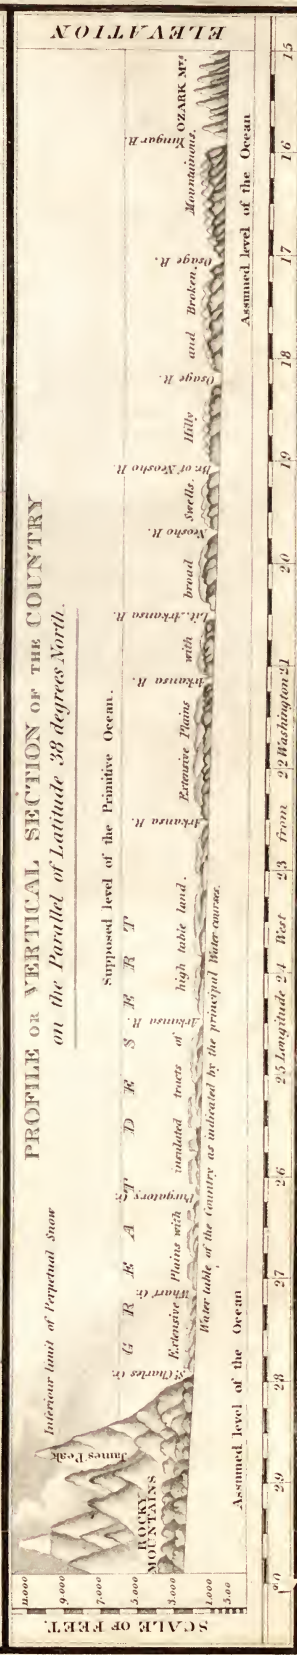 PROFILE OR VERTICAL SECTION OF THE COUNTRY
on the Parallel of Latitude 38 degrees North.
Inferiour limit of Perpetual Snow
Supposed level of the Primitive Ocean.
GREAT DESERT
James' Peak
ROCKY
MOUNTAINS
St Charles Cr.
Wharf Cr.
Purgatory Cr.
Arkansa R.
Arkansa R.
Arkansa R.
Lit. Arkansa R.
Neosho R.
Br. of Neosho R
Osage R.
Osage R.
Yungar R.
OZARK Mts
Extensive Plains with insulated tracts of high table land.
Extensive Plains with broad Swells.
Hilly and Broken.
Mountainous.
Water table of the Country as indicated by the principal Water-courses.
Assumed level of the Ocean
Assumed level of the Ocean
SCALE OF FEET.
11.000
9.000
7.000
5.000
3.000
1.000
5.00
ELEVATION
30 29 28 27 26 25 Longitude 24 West 23 from 22 Washington 21 20 19 18 17 16 15